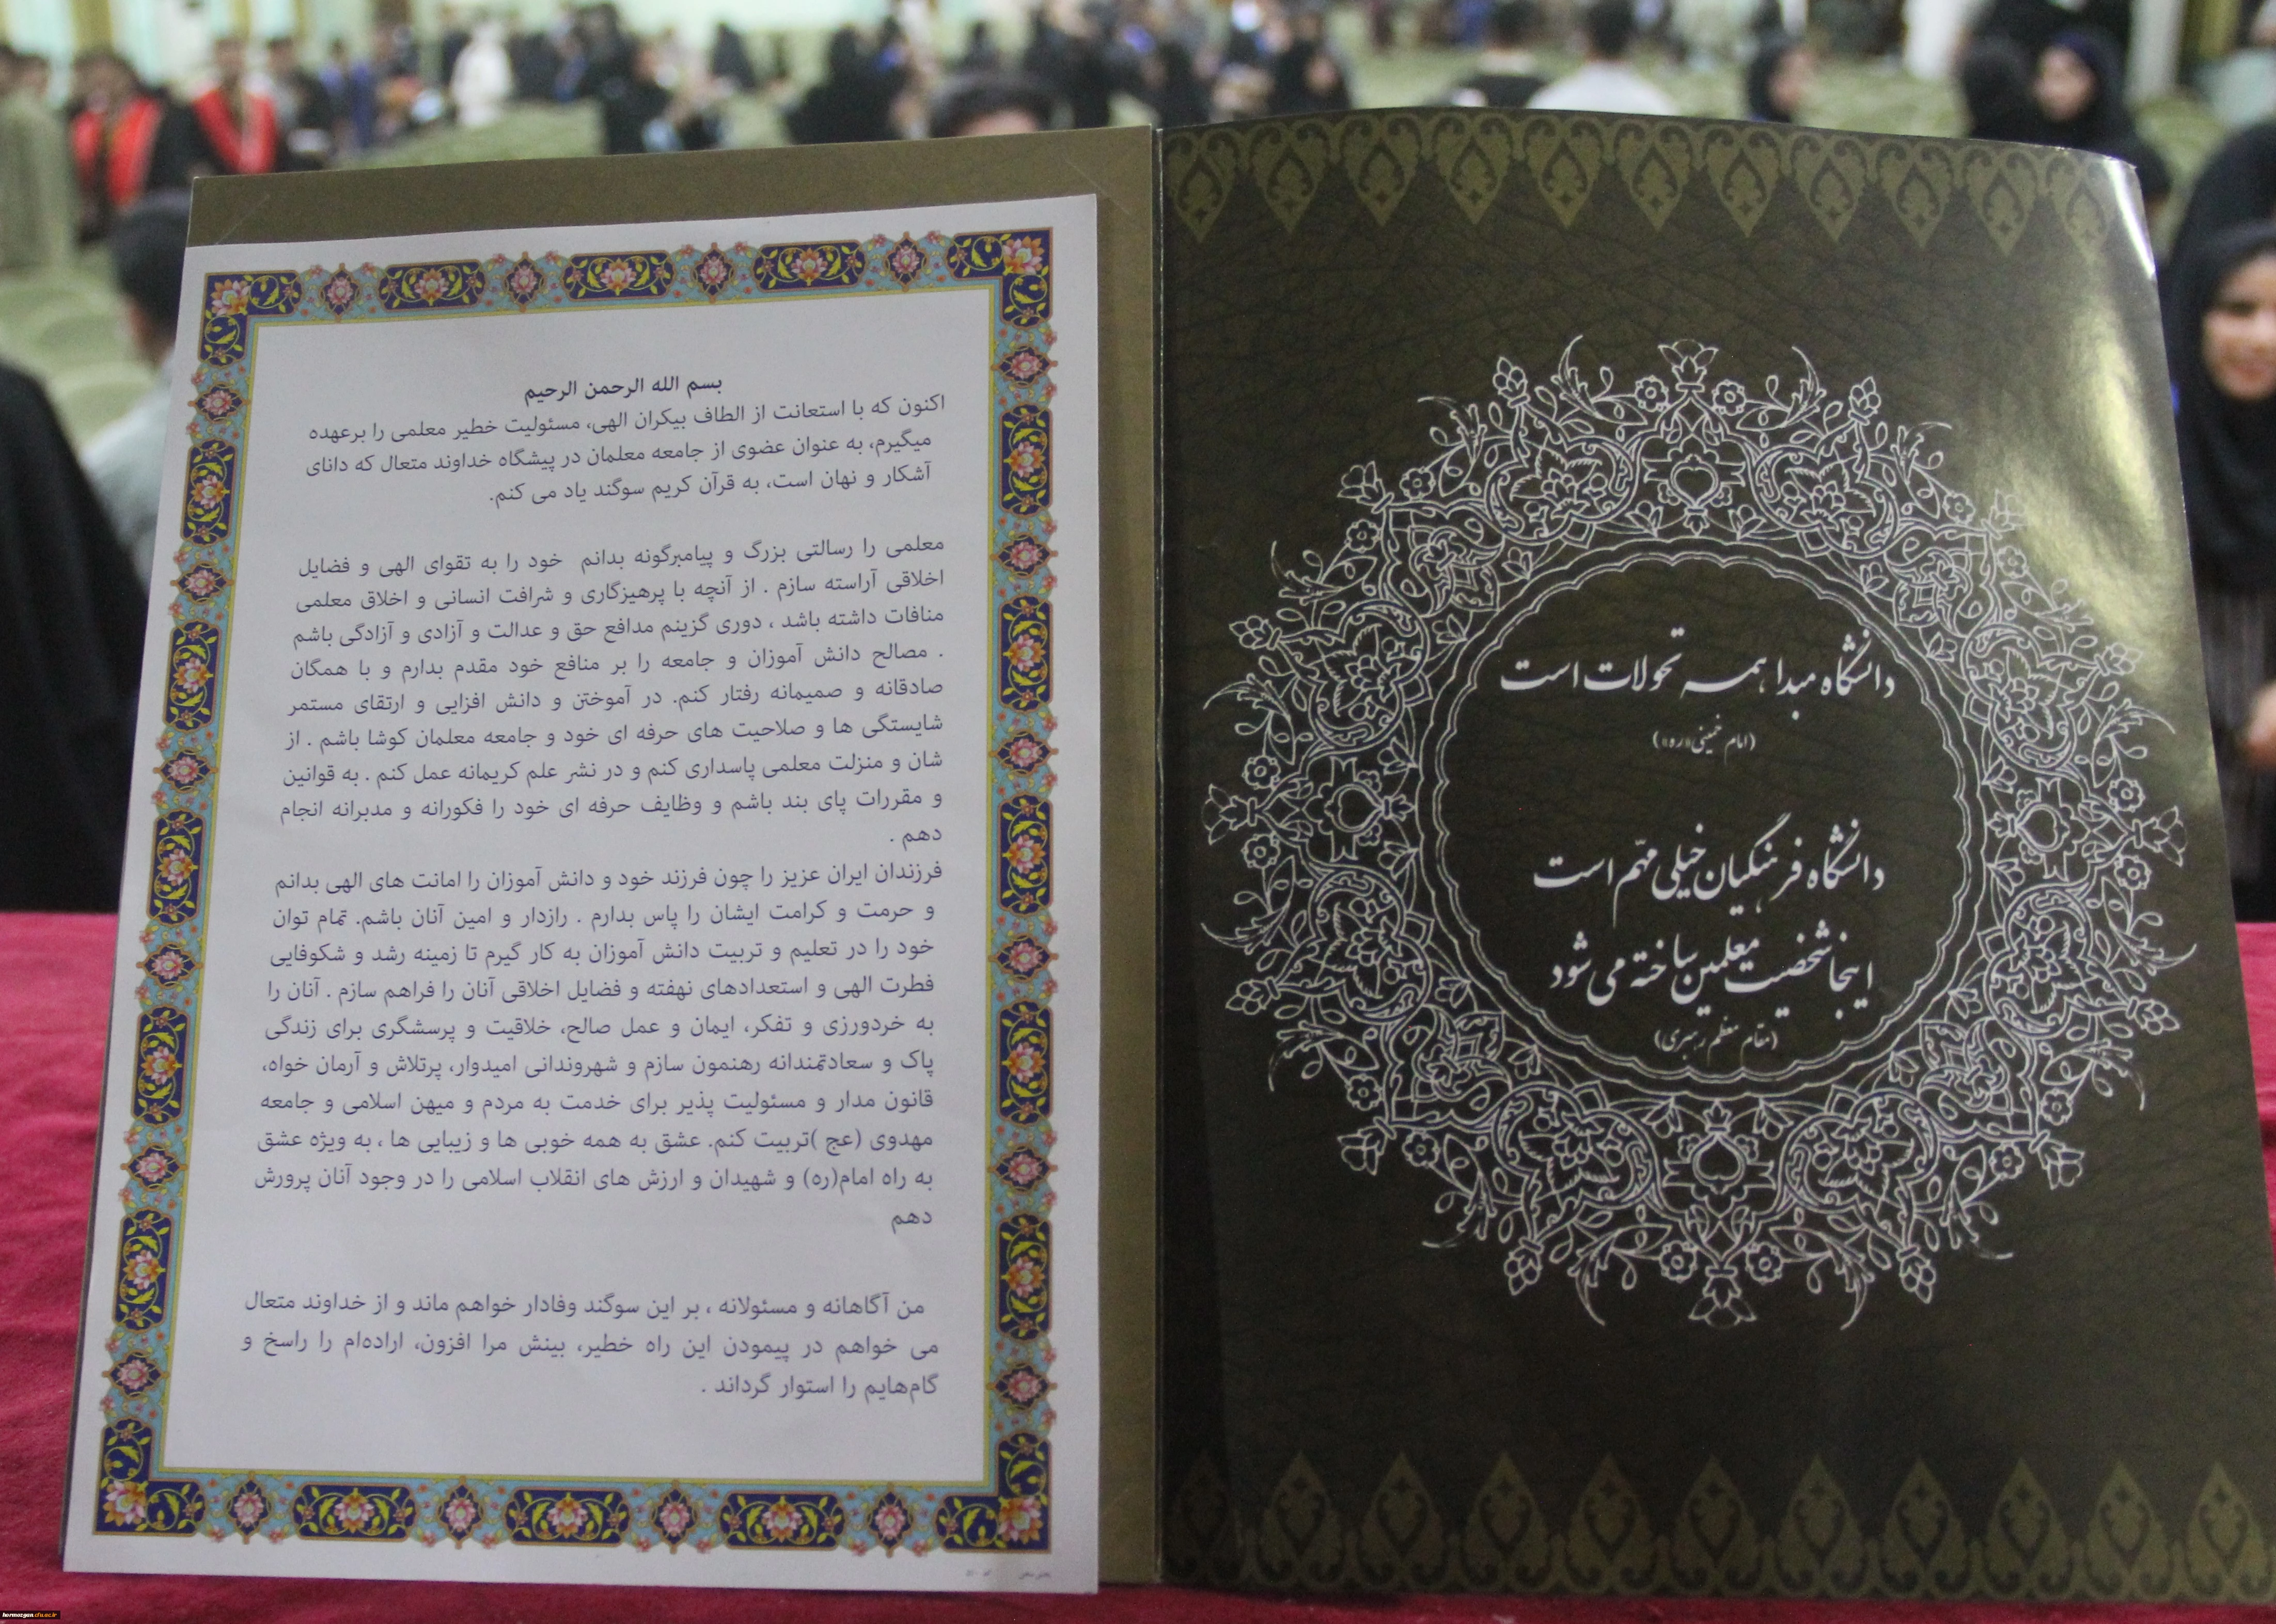 بسم الله الرحمن الرحیم
اکنون که با استعانت از الطاف بیکران الهی، مسئولیت خطیر معلمی را برعهده
میگیرم، به عنوان عضوی از جامعه معلمان در پیشگاه خداوند متعال که دانای
آشکار و نهان است، به قرآن کریم سوگند یاد می کنم.
معلمی را رسالتی بزرگ و پیامبرگونه بدانم خود را به تقوای الهی و فضایل
اخلاقی آراسته سازم . از آنچه با پرهیزگاری و شرافت انسانی و اخلاق معلمی
منافات داشته باشد ، دوری گزینم مدافع حق و عدالت و آزادی و آزادگی باشم
. مصالح دانش آموزان و جامعه را بر منافع خود مقدم بدارم و با همگان
صادقانه و صمیمانه رفتار کنم. در آموختن و دانش افزایی و ارتقای مستمر
شایستگی ها و صلاحیت های حرفه ای خود و جامعه معلمان کوشا باشم . از
شان و منزلت معلمی پاسداری کنم و در نشر علم کریمانه عمل کنم . به قوانین
و مقررات پای بند باشم و وظایف حرفه ای خود را فکورانه و مدبرانه انجام
دهم .
فرزندان ایران عزیز را چون فرزند خود و دانش آموزان را امانت های الهی بدانم
و حرمت و کرامت ایشان را پاس بدارم . رازدار و امین آنان باشم. تمام توان
خود را در تعلیم و تربیت دانش آموزان به کار گیرم تا زمینه رشد و شکوفایی
فطرت الهی و استعدادهای نهفته و فضایل اخلاقی آنان را فراهم سازم . آنان را
به خردورزی و تفکر، ایمان و عمل صالح، خلاقیت و پرسشگری برای زندگی
پاک و سعادتمندانه رهنمون سازم و شهروندانی امیدوار، پرتلاش و آرمان خواه،
قانون مدار و مسئولیت پذیر برای خدمت به مردم و میهن اسلامی و جامعه
مهدوی (عج )تربیت کنم. عشق به همه خوبی ها و زیبایی ها ، به ویژه عشق
به راه امام(ره) و شهیدان و ارزش های انقلاب اسلامی را در وجود آنان پرورش
دهم
من آگاهانه و مسئولانه ، بر این سوگند وفادار خواهم ماند و از خداوند متعال
می خواهم در پیمودن این راه خطیر، بینش مرا افزون، اراده‌ام را راسخ و
گام‌هایم را استوار گرداند .
دانشگاه مبدا همه تحولات است
(امام خمینی«ره»)
دانشگاه فرهنگیان خیلی مهّم است
اینجا شخصیت معلمین ساخته می شود
(مقام معظم رهبری)
hormozgan.cfu.ac.ir